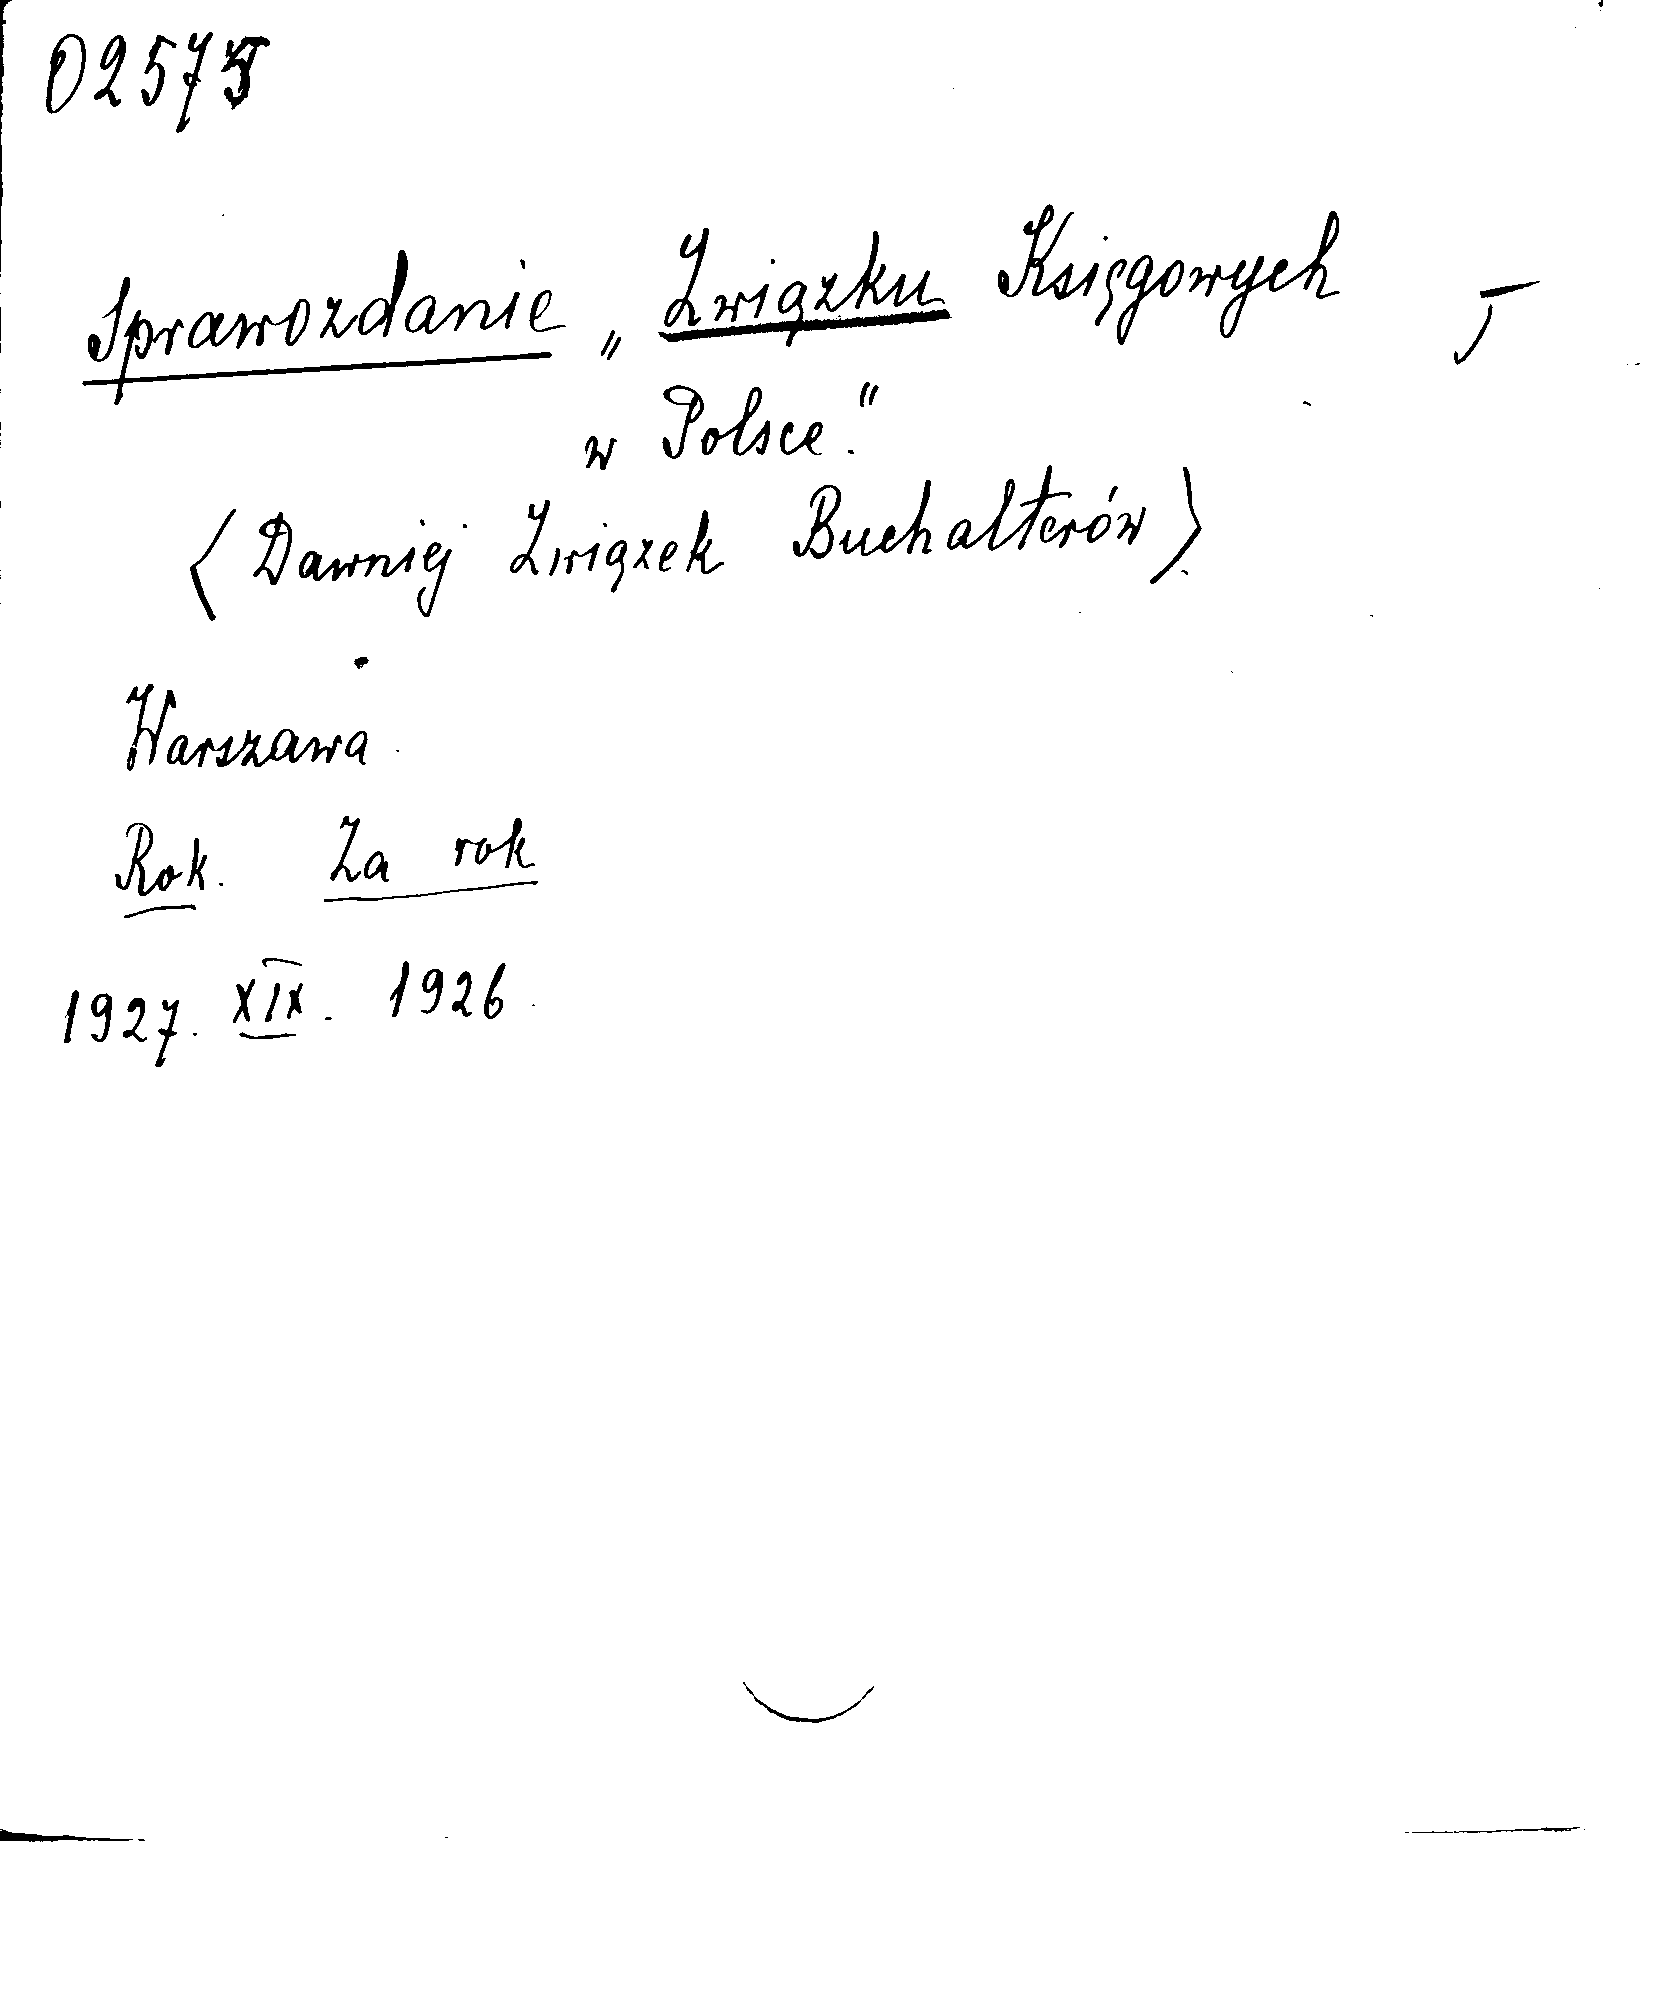 02575
Sprawozdanie „Związku Księgowych
w Polsce."
(Dawniej Związek Buchalterów)
Warszawa
Rok. Za rok
1927. XIX. 1926